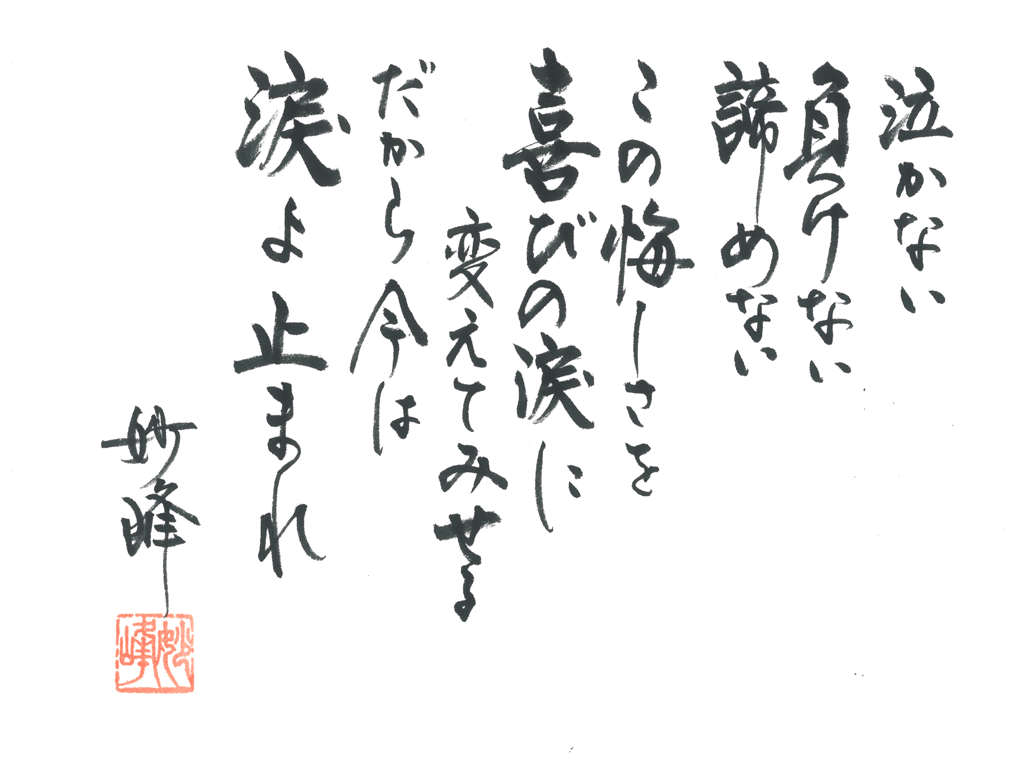 泣かない
負けない
諦めない
この悔しさを
喜びの涙に
変えてみせる
だから今は
涙よ止まれ
妙峰
妙峰